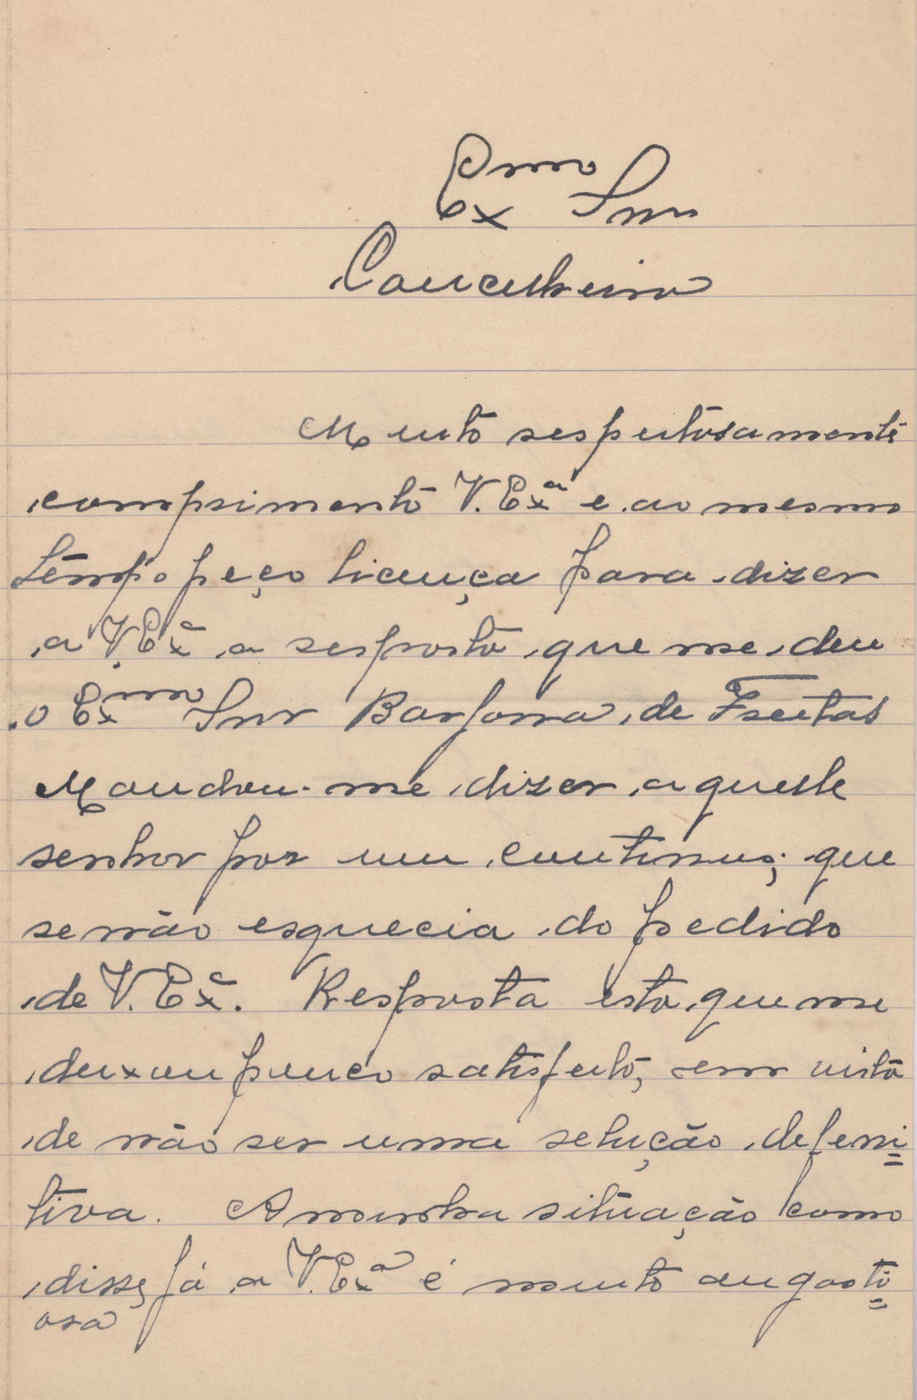 Exmo Snr
Concelheiro
Muito respeitosamente
comprimento V. Exª e ao mesmo
tempo peço licença para dizer
a V. Exª a resposta que me deu
o Exmo Snr Barjona de Freitas
Mandou-me dizer aquelle
senhor por um continuo; que
se não esquecia do pedido
de V. Exª. Resposta esta que me
deixou pouco satisfeito, em vista
de não ser uma selução defeni=
tiva. A minha situação como
disse já a V. Exª é muito angosti=
osa